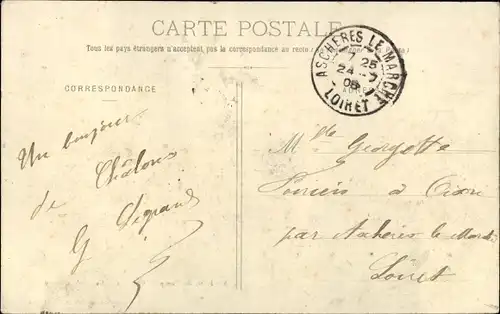 CARTE POSTALE
Tous les pays étrangers n'acceptent pas la correspondance au recto
CORRESPONDANCE
ASCHÈRES LE MARCHÉ
7 25
24
05
LOIRET
Un bonjour
de Châlons
G Legrand
Mlle Georgette
à
par Aschères le Marché
Loiret